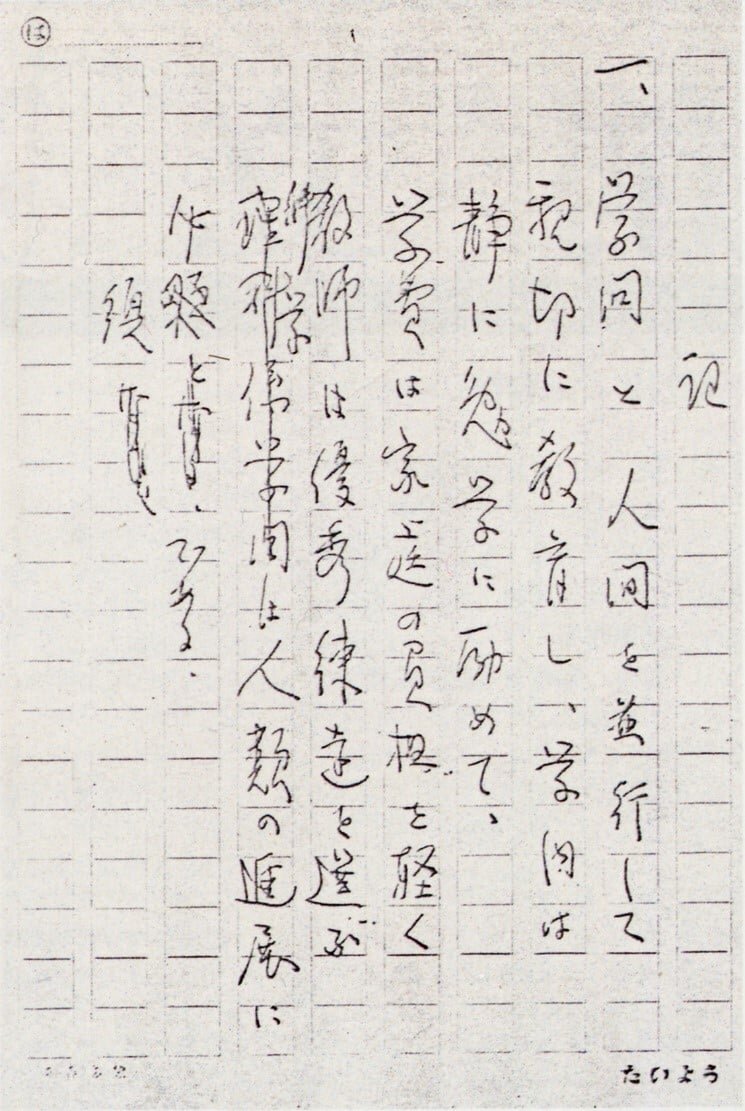 記
一、学問と人間を並行して
親切に教育し、学内は
静に勉学に励めて、
学費は家庭の負担を軽く
教師は優秀練達を選ぶ
理科学学問は人類の進展に
必
須
である。
は
たいよう